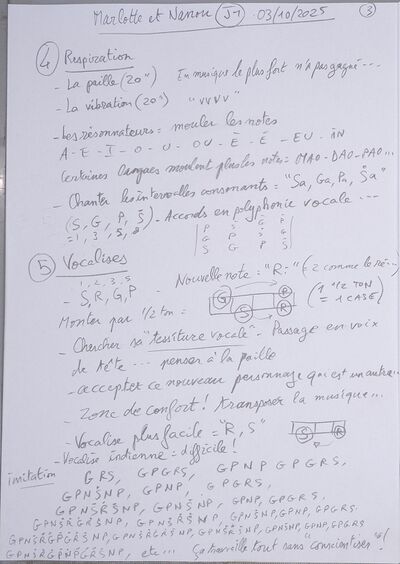 Marlotte et Nanou (J-1) - 03/10/2025 (3)
(4) Respiration
- La paille (20") En musique le plus fort n'a pas gagné...
- La vibration (20") "vvvv"
- Les résonnateurs = mouler les notes
A - E - I - O - U - OU - È - É - EU - IN
Certaines langues moulent plus les notes = MAO - DAO - PAO...
- Chanter les intervalles consonants = "Sa, Ga, Pa, Ṡa"
(S, G, P, Ṡ) - Accords en polyphonie vocale ...
= 1, 3, 5, 8
P Ṡ Ġ Ṗ
G P Ṡ Ġ
S G P Ṡ
(5) Vocalises
1, 2, 3, 5
- S, R, G, P - Nouvelle note = "R-" (= 2 comme le ré...)
Monter par 1/2 ton = G R S R (1 1/2 TON = 1 CASE)
- Chercher sa "tessiture vocale" - Passage en voix
de tête ... penser à la paille
- accepter ce nouveau personnage qui est un autre...
- Zone de confort ! transposer la musique...
- Vocalise plus facile = "R, S" S R
- Vocalise indienne = difficile !
imitation
G R S, G P G R S, G P N P G P G R S,
G P N Ṡ N P, G P N P, G P G R S,
G P N Ṡ Ṙ Ṡ N P, G P N Ṡ N P, G P N P, G P G R S,
G P N Ṡ Ṙ Ġ Ṙ Ṡ N P, G P N Ṡ Ṙ Ṡ N P, G P N Ṡ N P, G P N P, G P G R S
G P N Ṡ Ṙ Ġ Ṗ Ġ Ṙ Ṡ N P, G P N Ṡ Ṙ Ġ Ṙ Ṡ N P, G P N Ṡ Ṙ Ṡ N P, G P N Ṡ N P, G P N P, G P G R S
G P N Ṡ Ṙ Ġ Ṗ Ṅ Ṗ Ġ Ṙ Ṡ N P, etc... Ça travaille tout sans "conscientiser" !